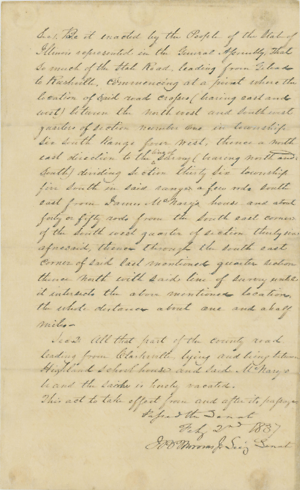 Sec 1 Be it enacted by the People of the State of
Illinois represented in the General Assembly That
so much of the State Road, leading from
to Nashville, Commencing at a point where the
location of said road crosses (bearing east and
west) between the north west and south west
quarters of section number one in township
Six South Range four West, thence a north
east direction to the line of Survey (bearing north and
South) dividing Section thirty six township
five South in said range a few rods south
east from James McNary's house and about
forty or fifty rods from the South east corner
of the South west quarter of section thirty six
aforesaid, thence through the south east
corner of said last mentioned quarter section
thence North with said line of survey until
it intersects the above mentioned location
the whole distance about one and a half
miles
Sec 2 All that part of the county road
leading from Clarksville lying and being between
Highland School house and Jack McNary's
leaves the same is hereby vacated.
This act to take effect from and after its passage
Passed the Senate
Feby 2nd 1837
Senate